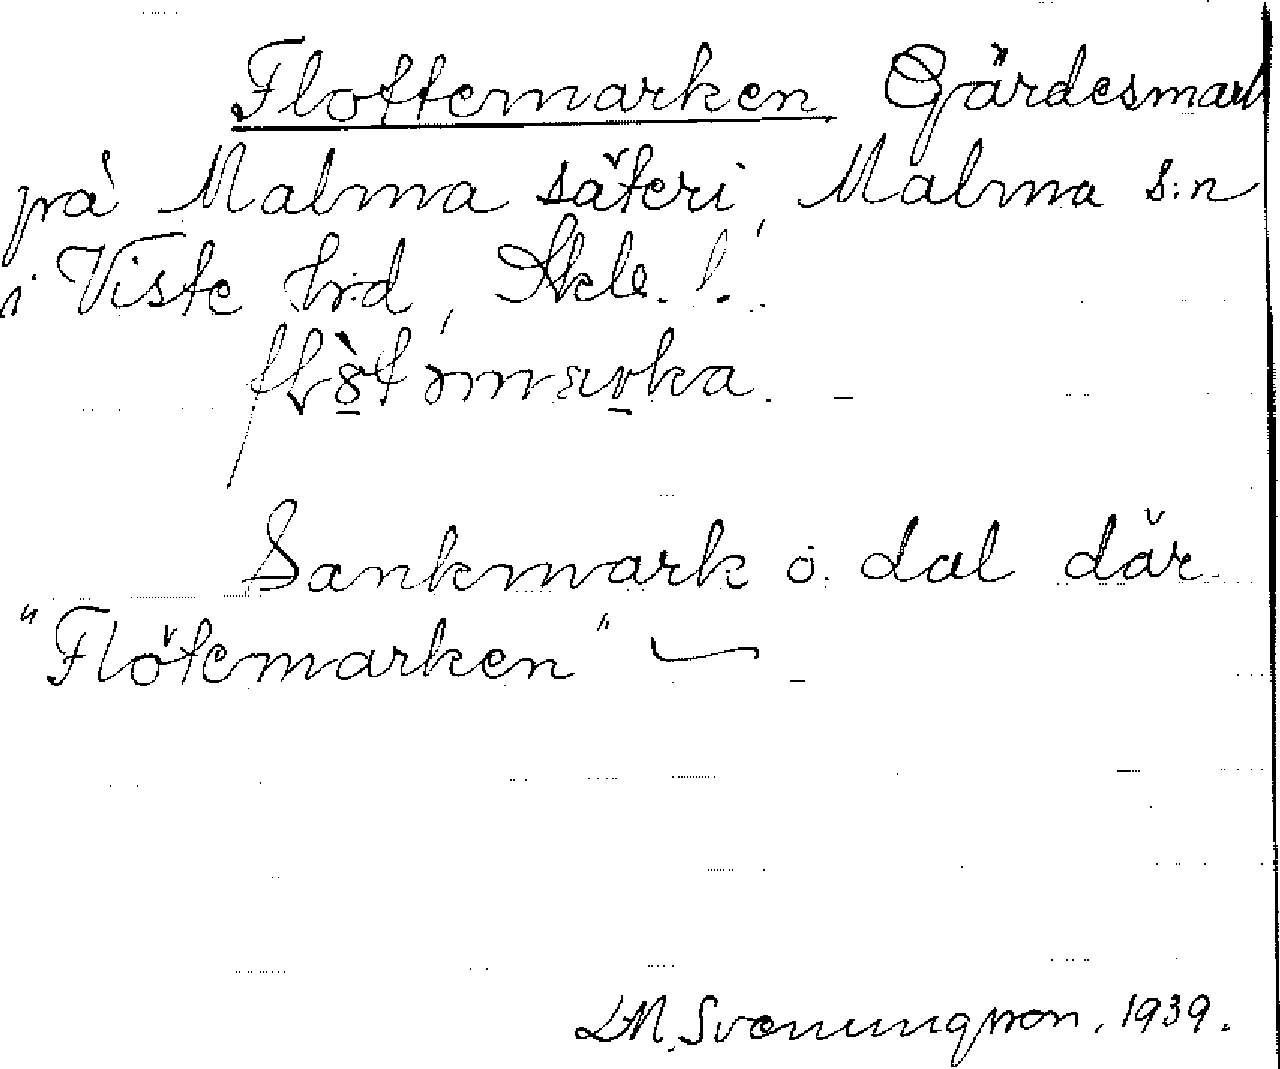 Flottemarken Gärdesmark
på Malma säteri, Malma s:n
i Viste hrd, Skbl. l.
Sankmark o. dal där
"Flötemarken"
LM. Svenungsson. 1939.